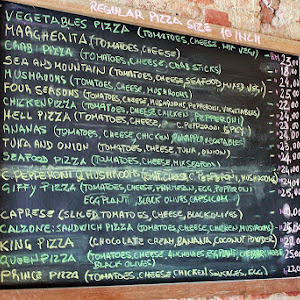 REGULAR PIZZA SIZE 10 INCH
VEGETABLES PIZZA (TOMATOES, CHEESE, MIX VEG) RM 23,00
MARGHERITA (TOMATOES, CHEESE)
CRAB PIZZA (TOMATOES, CHEESE, CRAB STICKS)
SEA AND MOUNTAIN (TOMATOES, CHEESE, SEAFOOD, MIXED VEG)
MUSHROOMS (TOMATOES, CHEESE, MUSHROOMS)
FOUR SEASONS (TOMATOES, CHEESE, MUSHROOMS, PEPPERONI, VEGETABLES)
CHICKEN PIZZA (TOMATOES, CHEESE, CHICKEN PEPPERONI)
HELL PIZZA (TOMATOES, CHEESE, C. PEPPERONI SPICY)
ANANAS (TOMATOES, CHEESE, CHICKEN, PINEAPPLE, VEGETABLES)
TUNA AND ONION (TOMATOES, CHEESE, TUNA, ONION)
SEAFOOD PIZZA (TOMATOES, CHEESE, MIX SEAFOOD)
C. PEPPERONI & MUSHROOMS (TOMATOES, CHEESE, C. PEPPERONI, MUSHROOMS)
GIFFY PIZZA (TOMATOES, CHEESE, PARMESAN, EGG, PEPPERONI
EGGPLANT, BLACK OLIVES, CAPSICUM)
CAPRESE (SLICED TOMATOES, CHEESE, BLACK OLIVES)
CALZONE: SANDWICH PIZZA (TOMATOES, CHEESE, CHICKEN, MUSHROOMS)
KING PIZZA (CHOCOLATE CREAM, BANANA, COCONUT POWDER)
QUEEN PIZZA (TOMATOES, CHEESE, ANCHOVIES, EGGPLANT, CHEDDAR CHEESE
BLACK OLIVES)
PRINCE PIZZA (TOMATOES, CHEESE, CHICKEN SAUSAGES, EGG)